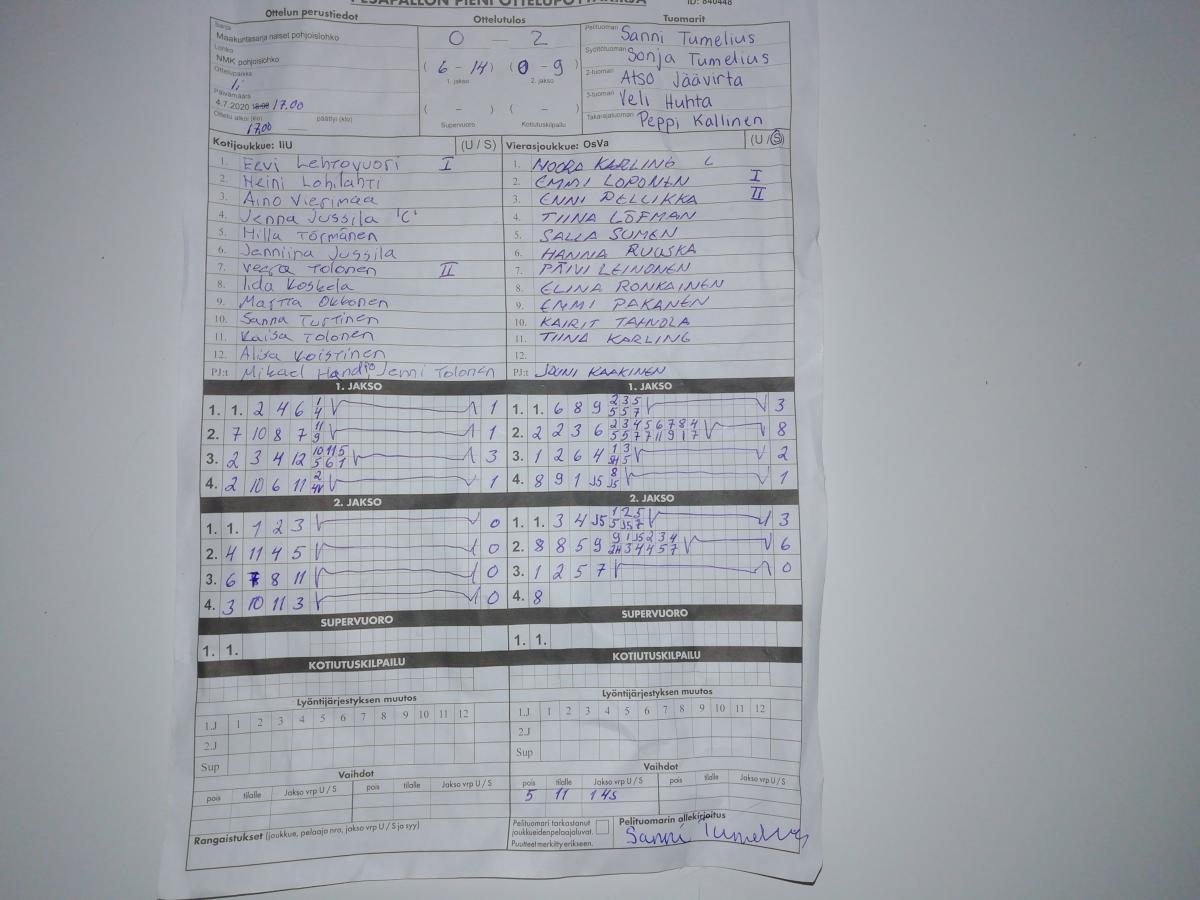 PESÄPALLON PIENI OTTELUPÖYTÄKIRJA ID: 840448
Ottelun perustiedot Ottelutulos Tuomarit
Sarja
Maakuntasarja naiset pohjoislohko
Lohko
NMK pohjoislohko
Ottelupaikka
Ii
Päivämäärä
4.7.2020 18:00 17.00
Ottelu alkoi (klo) päättyi (klo)
17.00
0 - 2
( 6 - 14 ) ( 0 - 9 )
1. jakso 2. jakso
( - ) ( - )
Supervuoro Kotiutuskilpailu
Pelituomari Sanni Tumelius
Syöttötuomari Sonja Tumelius
2-tuomari Atso Jäävirta
3-tuomari Veli Huhta
Takarajatuomari Peppi Kallinen
Kotijoukkue: IiU (U / S)
1. Eevi Lehtovuori I
2. Heini Lohilahti
3. Aino Vierimaa
4. Jenna Jussila 'C'
5. Hilla Törmänen
6. Jenniina Jussila
7. Veera Tolonen II
8. Iida Koskela
9. Martta Okkonen
10. Sanna Turtinen
11. Kaisa Tolonen
12. Alisa Koistinen
PJ:t Mikael Jenni Tolonen
Vierasjoukkue: OsVa (U / S)
1. NOORA KARLING C
2. EMMI LOPONEN I
3. ENNI PELLIKKA II
4. TIINA LÖFMAN
5. SALLA SUMEN
6. HANNA RUUSKA
7. PÄIVI LEINONEN
8. ELINA RONKAINEN
9. EMMI PAKANEN
10. KAIRIT TAHNOLA
11. TIINA KARLING
12.
PJ:t JOUNI KAAKINEN
1. JAKSO
1. 1. 2 4 6 1 4 1
2. 7 10 8 7 11 9 1
3. 2 3 4 12 10 11 5 5 6 1 3
4. 2 10 6 11 2 1
1. JAKSO
1. 1. 6 8 9 2 3 5 5 5 7 3
2. 2 2 3 6 2 3 4 5 6 7 8 4 5 5 7 7 11 9 1 7 8
3. 1 2 6 4 1 3 2
4. 8 9 1 J5 8 J5 1
2. JAKSO
1. 1. 1 2 3 0
2. 4 11 4 5 0
3. 6 7 8 11 0
4. 3 10 11 3 0
2. JAKSO
1. 1. 3 4 J5 1 2 5 5 J5 7 3
2. 8 8 5 9 9 1 J5 2 3 4 2H 3 4 4 5 7 6
3. 1 2 5 7 0
4. 8
SUPERVUORO
1. 1.
SUPERVUORO
1. 1.
KOTIUTUSKILPAILU
KOTIUTUSKILPAILU
Lyöntijärjestyksen muutos
1.J 1 2 3 4 5 6 7 8 9 10 11 12
2.J
Sup
Lyöntijärjestyksen muutos
1.J 1 2 3 4 5 6 7 8 9 10 11 12
2.J
Sup
Vaihdot
pois tilalle Jakso vrp U / S pois tilalle Jakso vrp U / S
Vaihdot
pois tilalle Jakso vrp U / S pois tilalle Jakso vrp U / S
5 11 1 4S
Rangaistukset (joukkue, pelaaja nro, jakso vrp U / S ja syy)
Pelituomari tarkastanut
joukkueidenpelaajaluvat.
Puutteet merkitty erikseen.
Pelituomarin allekirjoitus
Sanni Tumelius